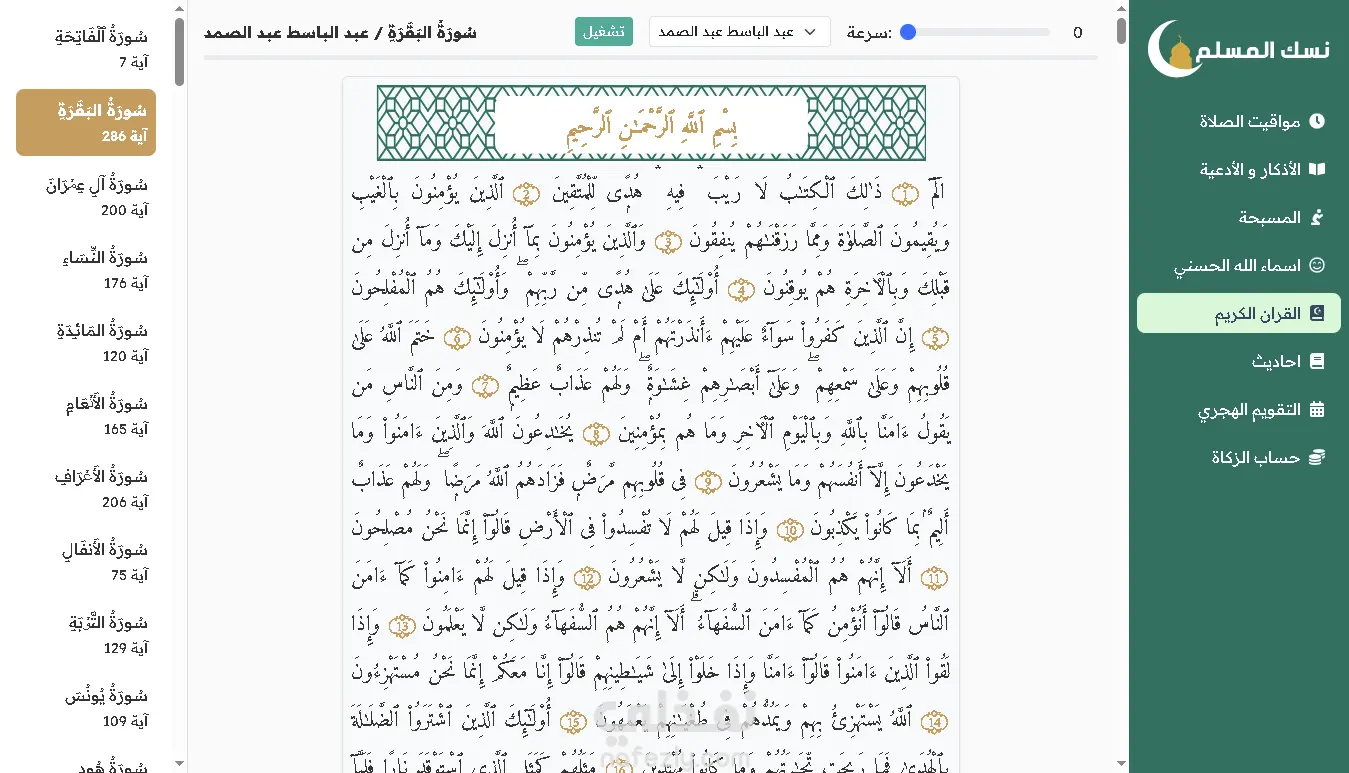 نسك المسلم
مواقيت الصلاة
الأذكار و الأدعية
المسبحة
اسماء الله الحسني
القران الكريم
احاديث
التقويم الهجري
حساب الزكاة
سُورَةُ البَقَرَةِ / عبد الباسط عبد الصمد
تشغيل
عبد الباسط عبد الصمد
سرعة:
0
بِسْمِ ٱللَّهِ ٱلرَّحْمَـٰنِ ٱلرَّحِيمِ
الٓمٓ ١ ذَٰلِكَ ٱلْكِتَـٰبُ لَا رَيْبَ ۛ فِيهِ ۛ هُدًى لِّلْمُتَّقِينَ ٢ ٱلَّذِينَ يُؤْمِنُونَ بِٱلْغَيْبِ
وَيُقِيمُونَ ٱلصَّلَوٰةَ وَمِمَّا رَزَقْنَـٰهُمْ يُنفِقُونَ ٣ وَٱلَّذِينَ يُؤْمِنُونَ بِمَآ أُنزِلَ إِلَيْكَ وَمَآ أُنزِلَ مِن
قَبْلِكَ وَبِٱلْـَٔاخِرَةِ هُمْ يُوقِنُونَ ٤ أُو۟لَـٰٓئِكَ عَلَىٰ هُدًى مِّن رَّبِّهِمْ ۖ وَأُو۟لَـٰٓئِكَ هُمُ ٱلْمُفْلِحُونَ
٥ إِنَّ ٱلَّذِينَ كَفَرُوا۟ سَوَآءٌ عَلَيْهِمْ ءَأَنذَرْتَهُمْ أَمْ لَمْ تُنذِرْهُمْ لَا يُؤْمِنُونَ ٦ خَتَمَ ٱللَّهُ عَلَىٰ
قُلُوبِهِمْ وَعَلَىٰ سَمْعِهِمْ ۖ وَعَلَىٰٓ أَبْصَـٰرِهِمْ غِشَـٰوَةٌ ۖ وَلَهُمْ عَذَابٌ عَظِيمٌ ٧ وَمِنَ ٱلنَّاسِ مَن
يَقُولُ ءَامَنَّا بِٱللَّهِ وَبِٱلْيَوْمِ ٱلْـَٔاخِرِ وَمَا هُم بِمُؤْمِنِينَ ٨ يُخَـٰدِعُونَ ٱللَّهَ وَٱلَّذِينَ ءَامَنُوا۟ وَمَا
يَخْدَعُونَ إِلَّآ أَنفُسَهُمْ وَمَا يَشْعُرُونَ ٩ فِى قُلُوبِهِم مَّرَضٌ فَزَادَهُمُ ٱللَّهُ مَرَضًا ۖ وَلَهُمْ عَذَابٌ
أَلِيمٌۢ بِمَا كَانُوا۟ يَكْذِبُونَ ١٠ وَإِذَا قِيلَ لَهُمْ لَا تُفْسِدُوا۟ فِى ٱلْأَرْضِ قَالُوٓا۟ إِنَّمَا نَحْنُ مُصْلِحُونَ
١١ أَلَآ إِنَّهُمْ هُمُ ٱلْمُفْسِدُونَ وَلَـٰكِن لَّا يَشْعُرُونَ ١٢ وَإِذَا قِيلَ لَهُمْ ءَامِنُوا۟ كَمَآ ءَامَنَ
ٱلنَّاسُ قَالُوٓا۟ أَنُؤْمِنُ كَمَآ ءَامَنَ ٱلسُّفَهَآءُ ۗ أَلَآ إِنَّهُمْ هُمُ ٱلسُّفَهَآءُ وَلَـٰكِن لَّا يَعْلَمُونَ ١٣ وَإِذَا
لَقُوا۟ ٱلَّذِينَ ءَامَنُوا۟ قَالُوٓا۟ ءَامَنَّا وَإِذَا خَلَوْا۟ إِلَىٰ شَيَـٰطِينِهِمْ قَالُوٓا۟ إِنَّا مَعَكُمْ إِنَّمَا نَحْنُ مُسْتَهْزِءُونَ
١٤ ٱللَّهُ يَسْتَهْزِئُ بِهِمْ وَيَمُدُّهُمْ فِى طُغْيَـٰنِهِمْ يَعْمَهُونَ ١٥ أُو۟لَـٰٓئِكَ ٱلَّذِينَ ٱشْتَرَوُا۟ ٱلضَّلَـٰلَةَ
بِٱلْهُدَىٰ فَمَا رَبِحَت تِّجَـٰرَتُهُمْ وَمَا كَانُوا۟ مُهْتَدِينَ ١٦ مَثَلُهُمْ كَمَثَلِ ٱلَّذِى ٱسْتَوْقَدَ نَارًا فَلَمَّآ
نفذلي
nafezly.com
سُورَةُ ٱلْفَاتِحَةِ
آية 7
سُورَةُ البَقَرَةِ
آية 286
سُورَةُ آلِ عِمۡرَانَ
آية 200
سُورَةُ النِّسَاءِ
آية 176
سُورَةُ المَائـِدَةِ
آية 120
سُورَةُ الأَنۡعَامِ
آية 165
سُورَةُ الأَعۡرَافِ
آية 206
سُورَةُ الأَنفَالِ
آية 75
سُورَةُ التَّوۡبَةِ
آية 129
سُورَةُ يُونُسَ
آية 109
سُورَةُ هُودٍ